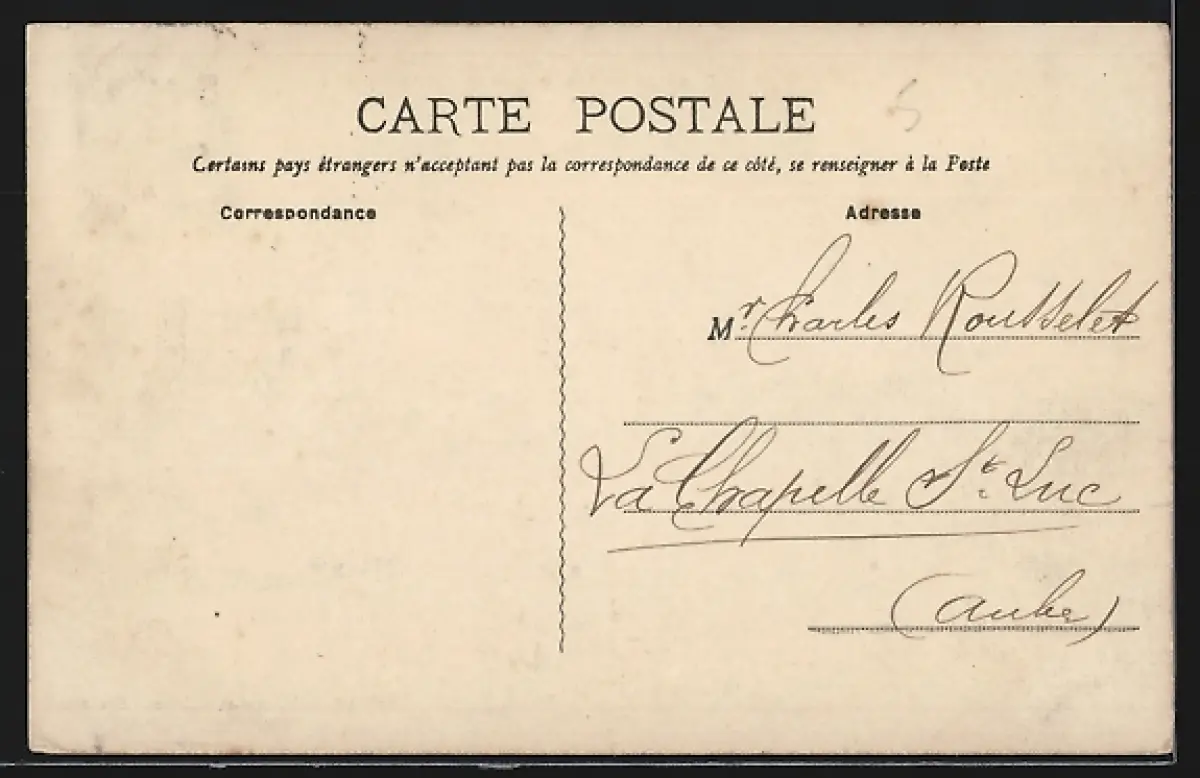 CARTE POSTALE
Certains pays étrangers n'acceptant pas la correspondance de ce côté, se renseigner à la Poste
Correspondance
Adresse
Mr. Charles Rousselet
La Chapelle St. Luc
(Aube)